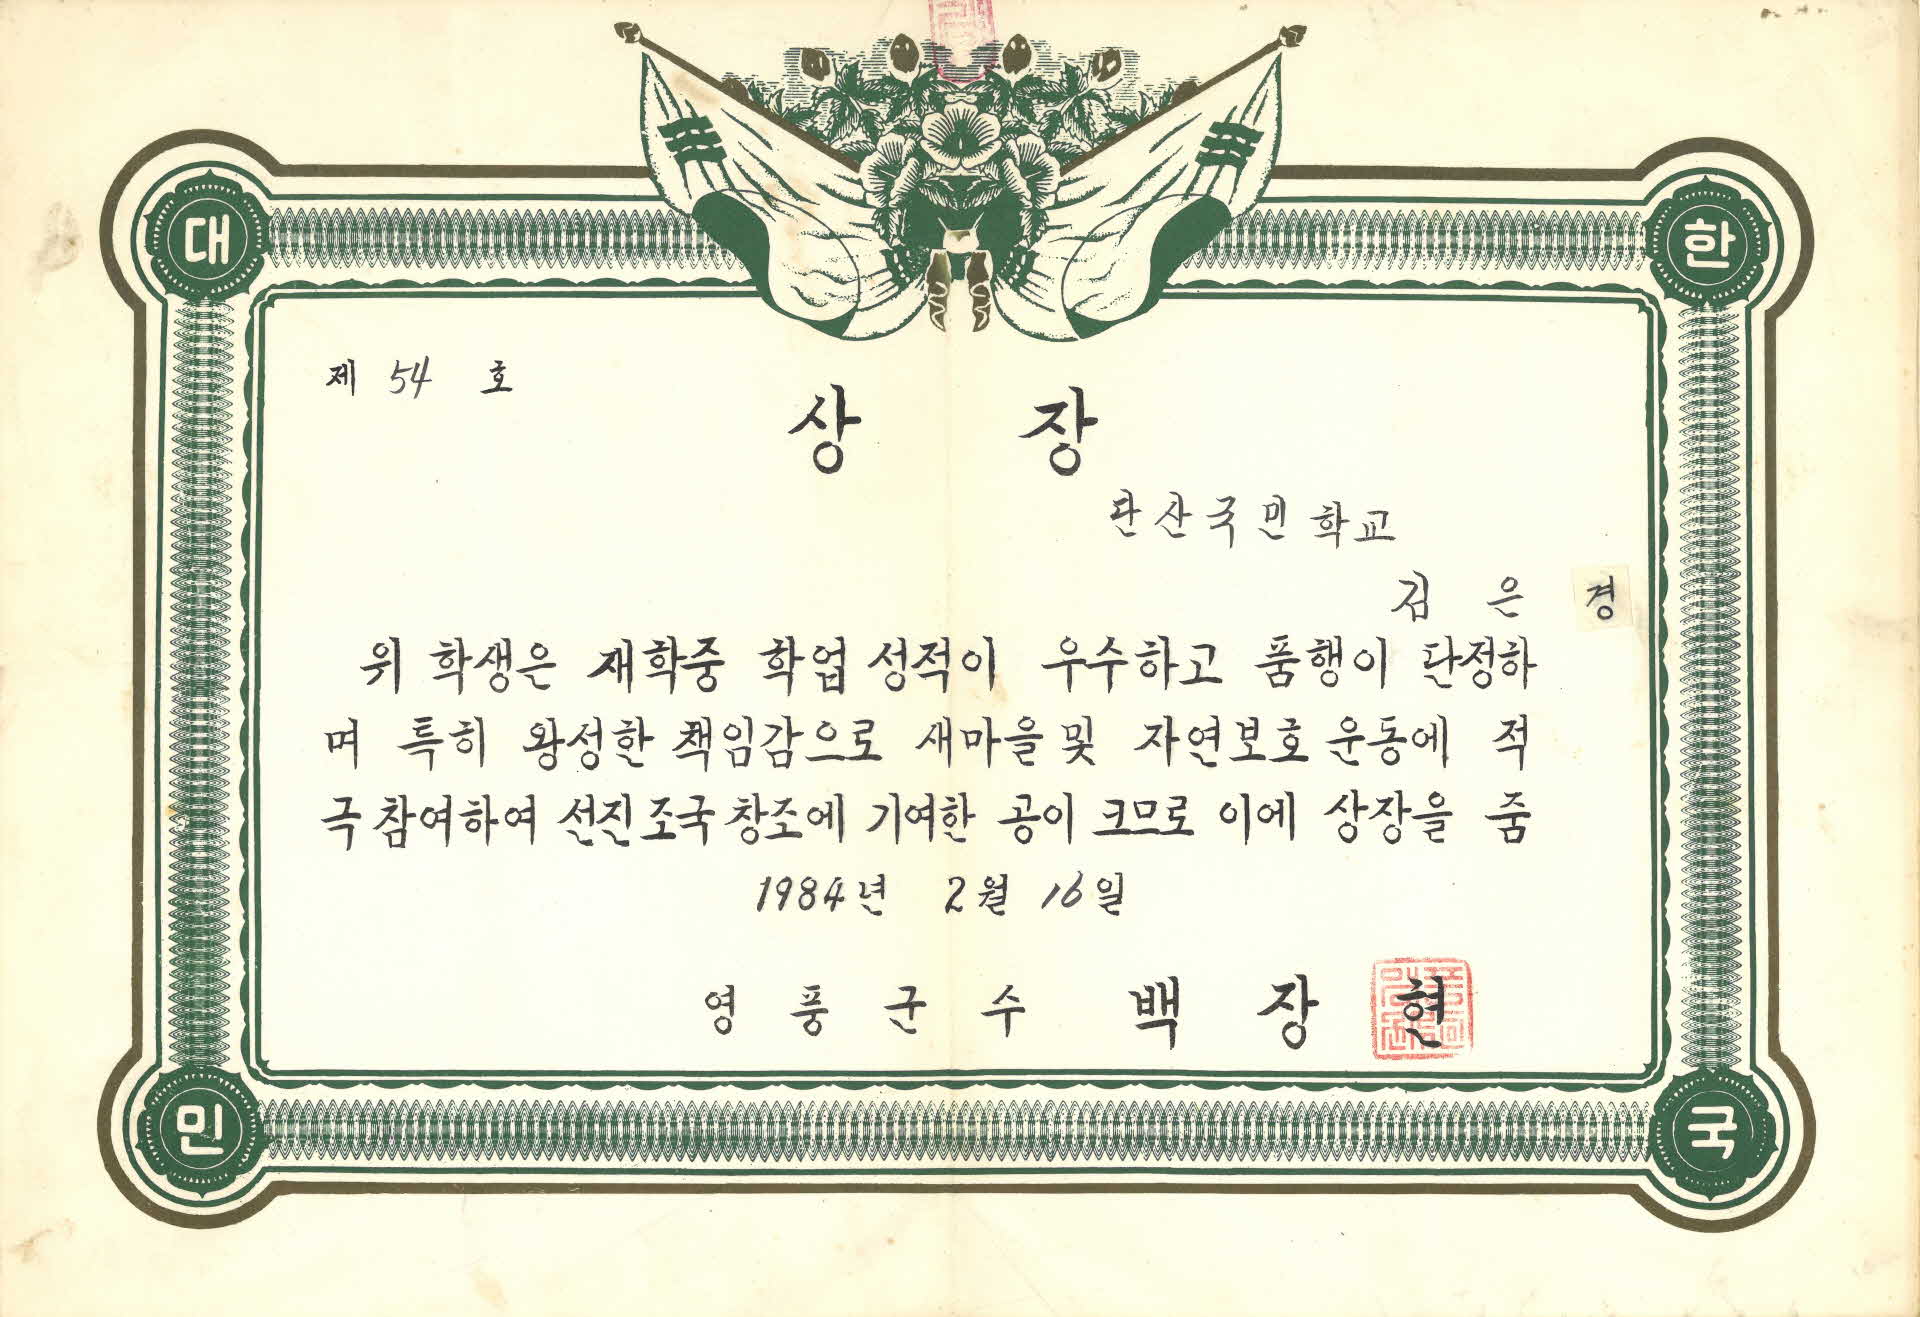 대 한
제 54 호
상 장
단산국민학교
김 은 경
위 학생은 재학중 학업 성적이 우수하고 품행이 단정하
며 특히 왕성한 책임감으로 새마을 및 자연보호 운동에 적
극 참여하여 선진조국 창조에 기여한 공이 크므로 이에 상장을 줌
1984년 2월 16일
영 풍 군 수 백 장 현
민 국